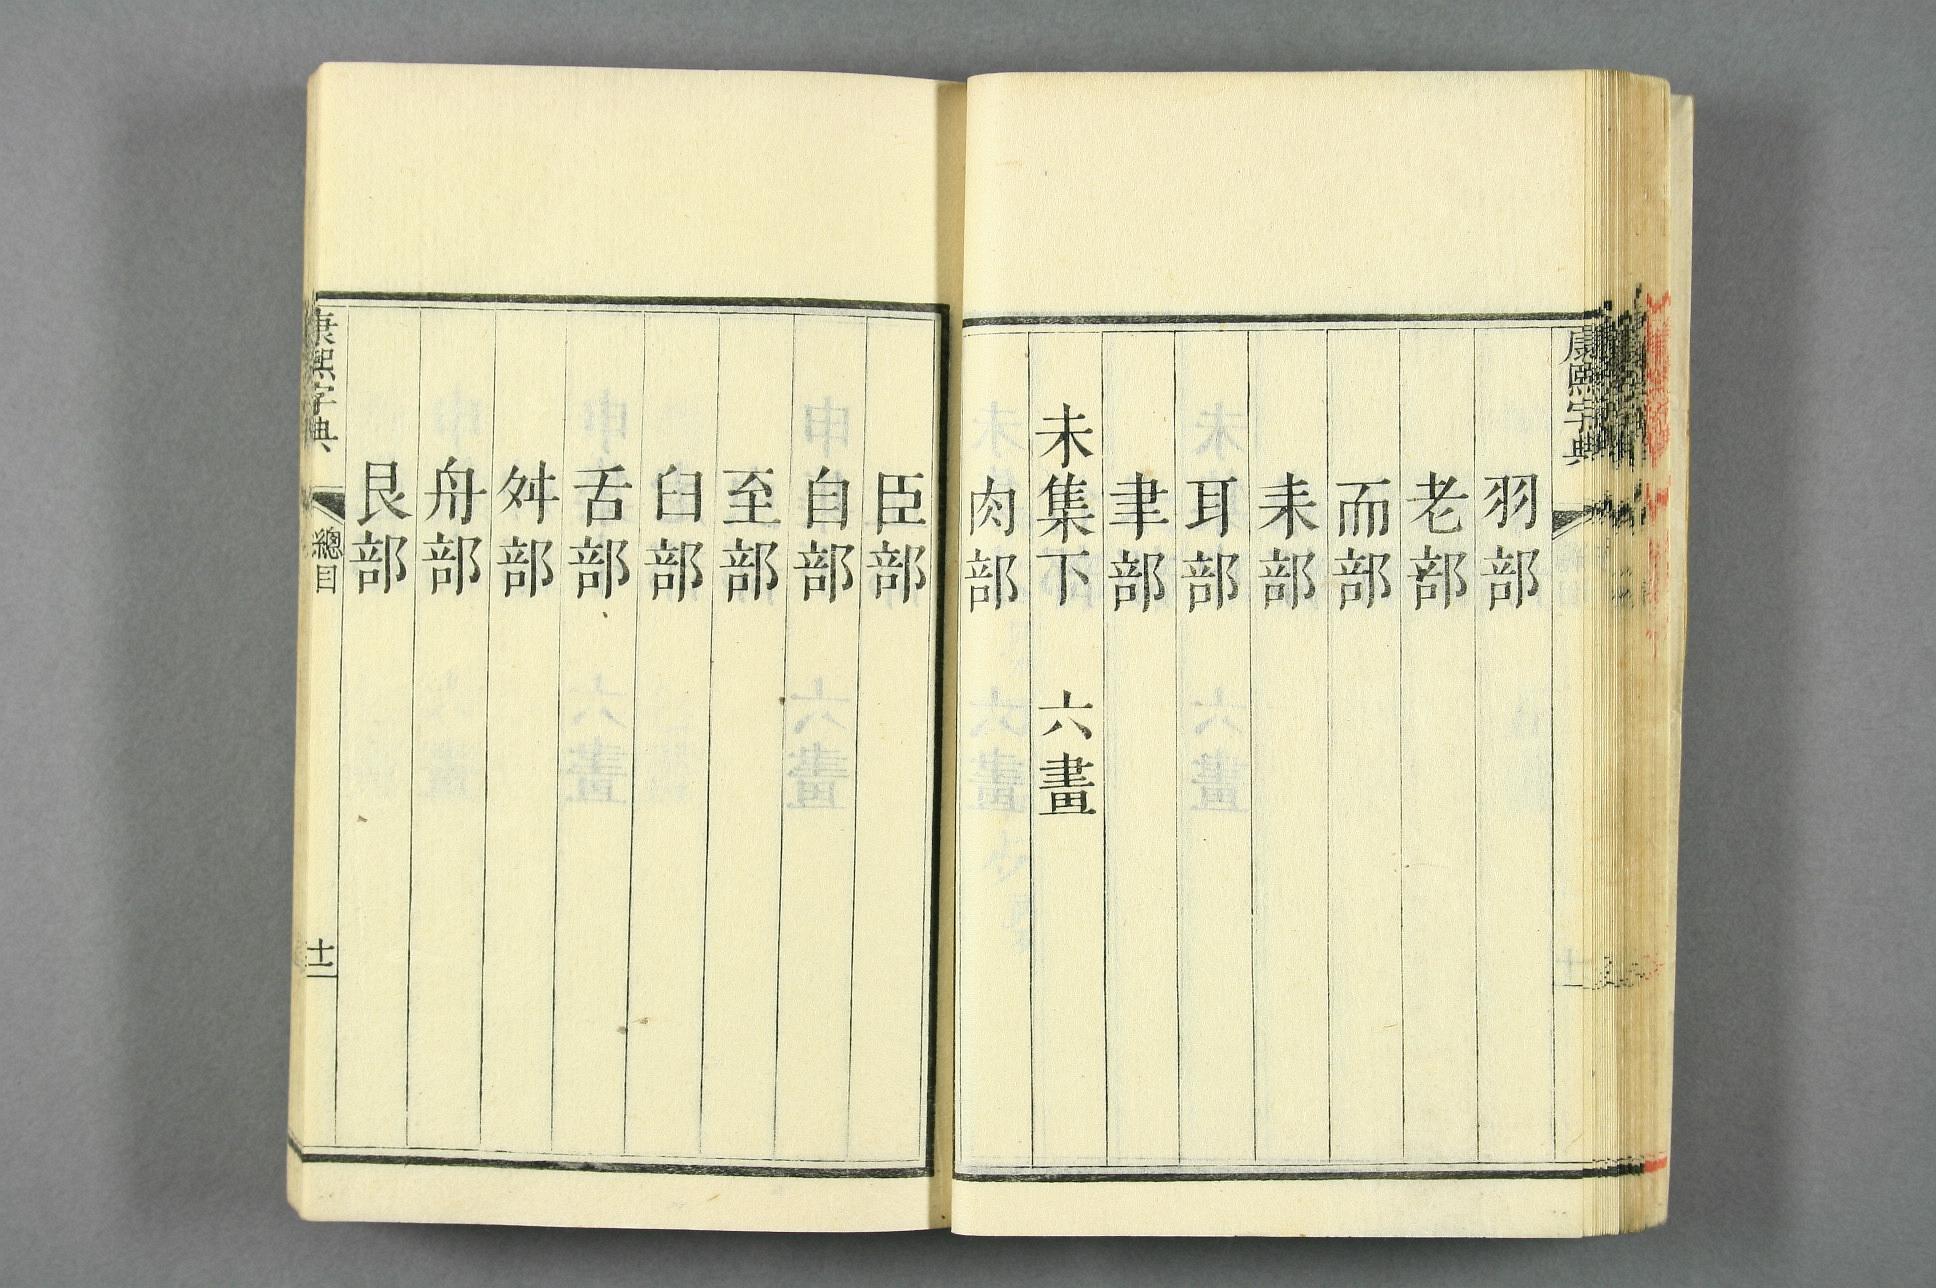 康熙字典
羽部
老部
而部
耒部
耳部
聿部
未集下　六畫
肉部
臣部
自部
至部
臼部
舌部
舛部
舟部
艮部
康熙字典
總目
十二